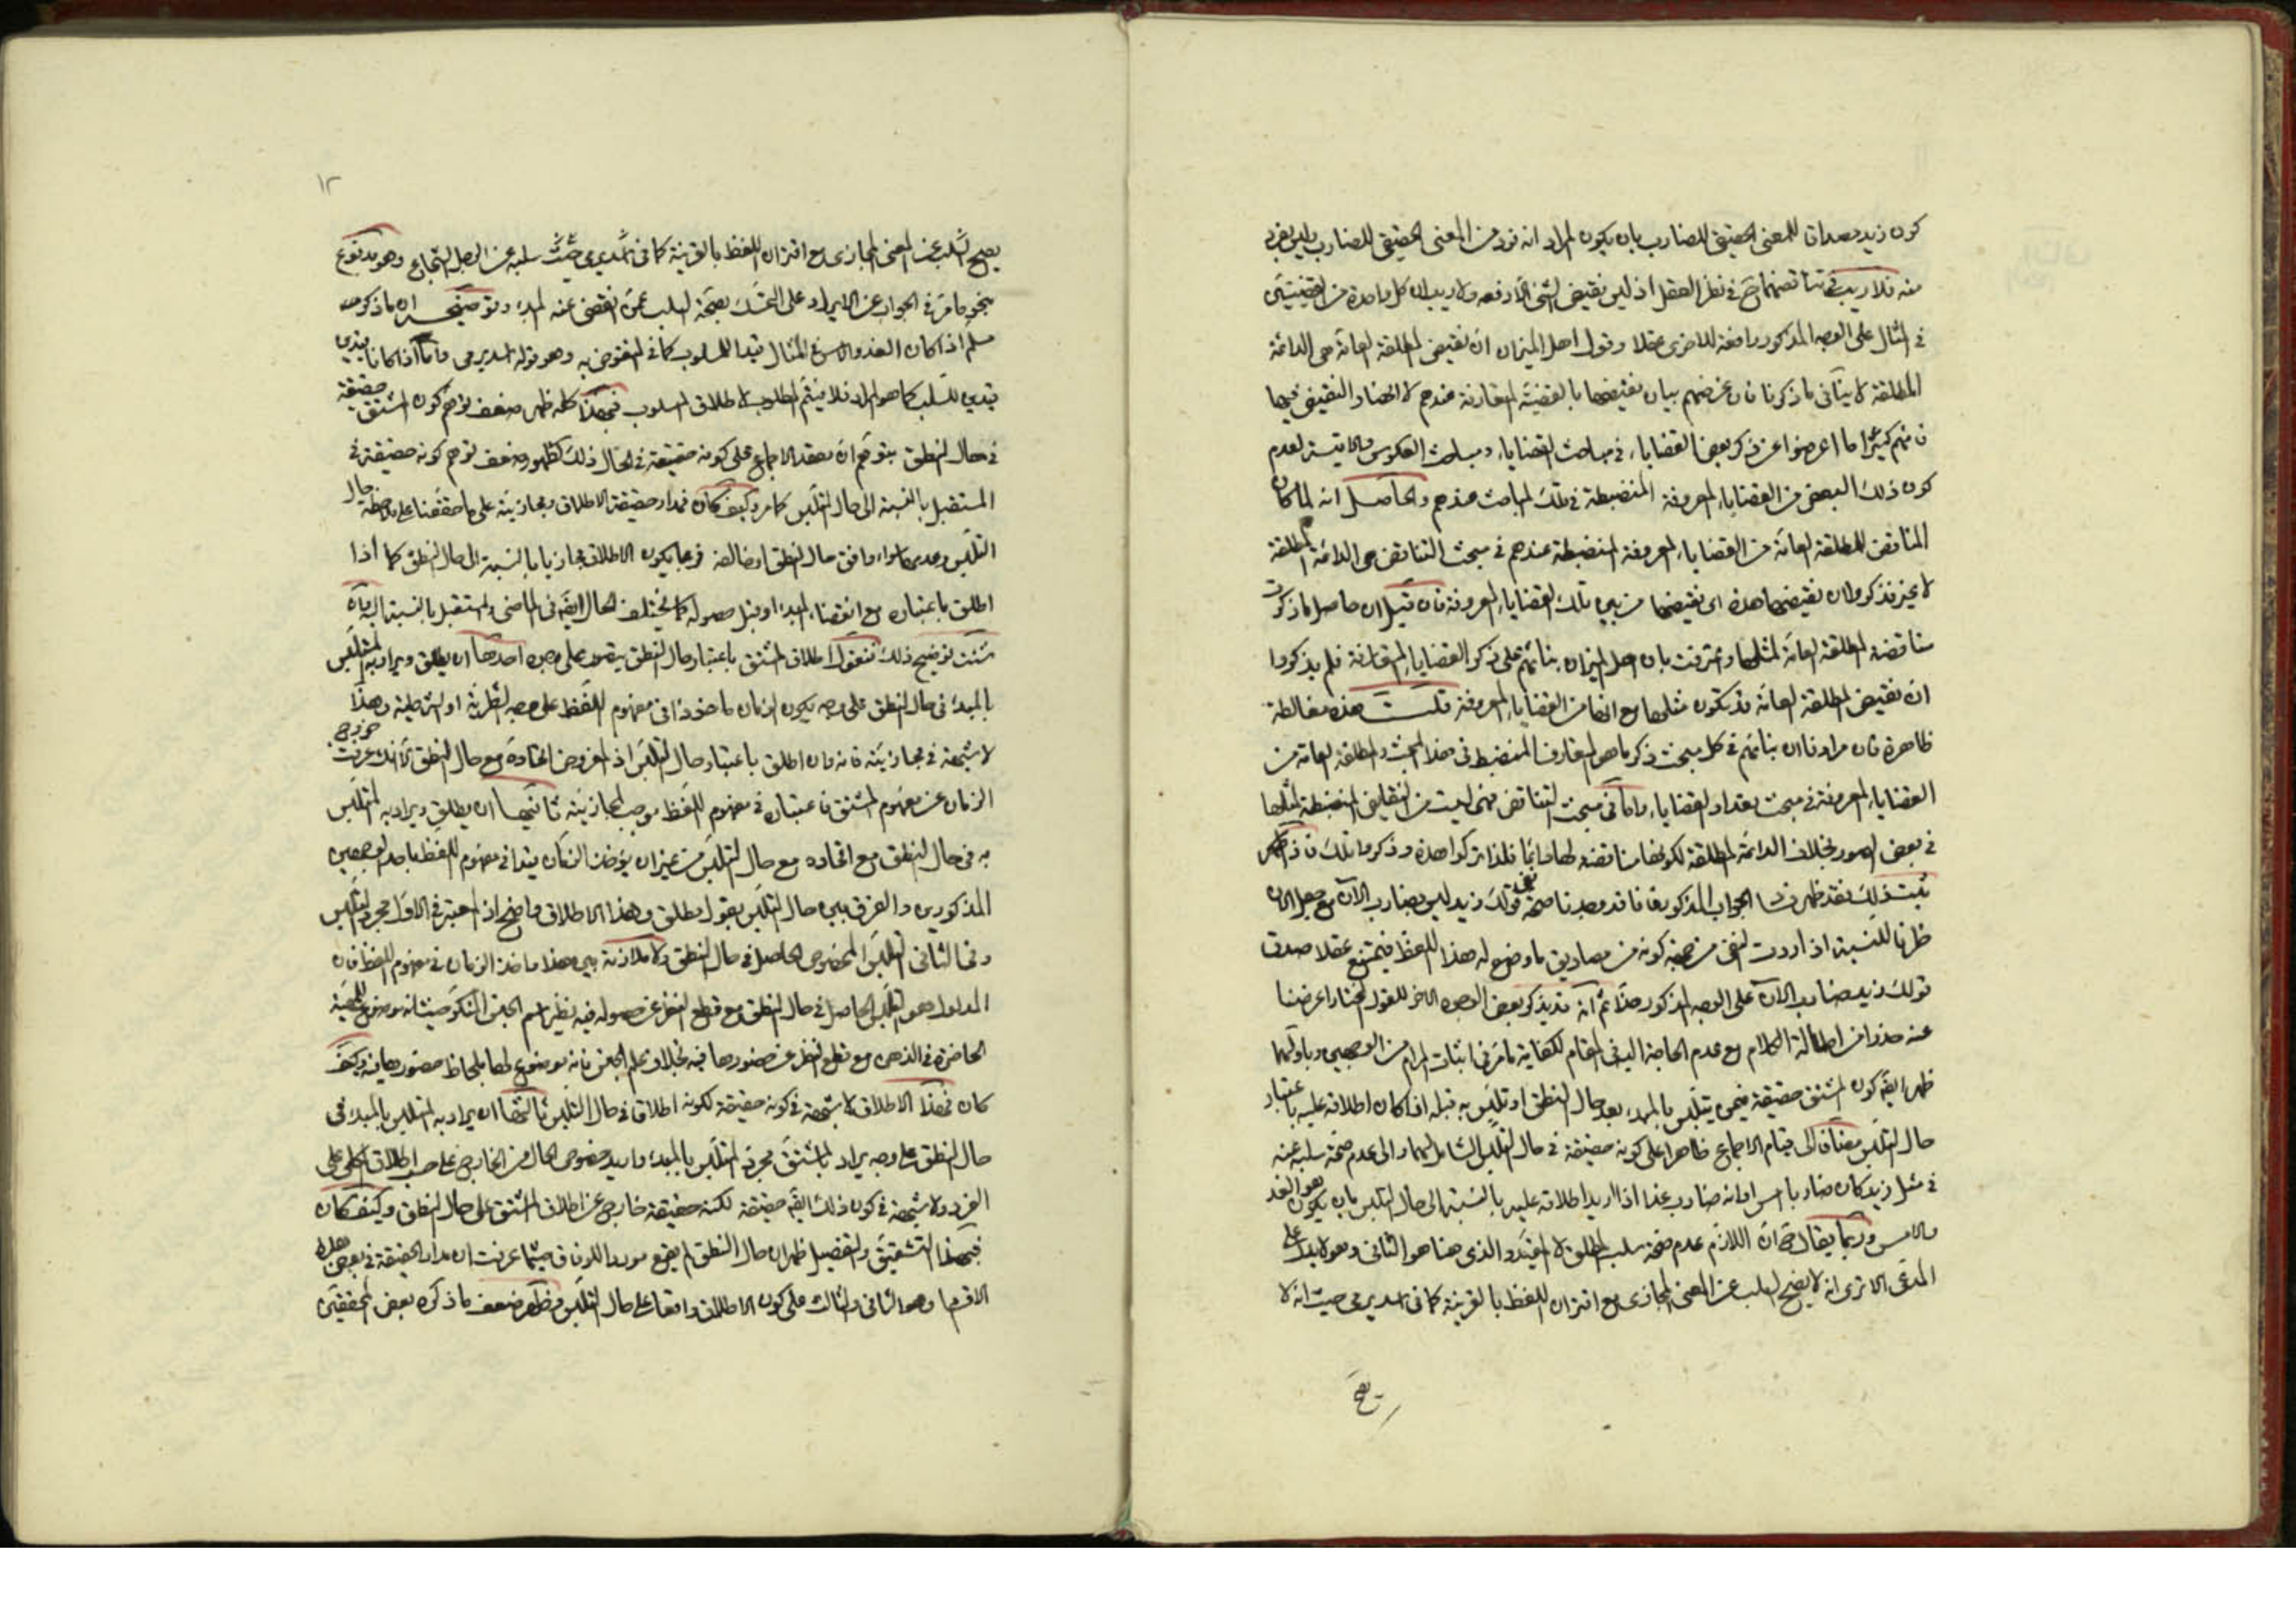 كون زيد مصداقا للمعنى الحقيقي للضارب بان يكون المراد انه فرد من المعنى الحقيقي للضارب وليس بفرد
منه فلا ريب في تناقضهما ح في نظر العقل اذ ليس نقيض الشئ الا رفعه ولا ريب ان كل واحدة من القضيتين
في المثال على الوجه المذكور رافعة للاخرى عقلا وقول اهل الميزان ان نقيض المطلقة العامة هى الدائمة
المطلقة لا ينافى ما ذكرنا فان غرضهم بيان نقيضها بالقضية المتعارفة عندهم لا انحصار النقيض فيها
فانهم كثيرا ما اعرضوا عن ذكر بعض القضايا، في مباحث القضايا، ومباحث العكوس والاقيسة لعدم
كون ذلك البعض من القضايا، المعروفة المنضبطة في تلك المباحث عندهم والحاصل انه لما كان
المناقض للمطلقة العامة من القضايا، المعروفة المنضبطة عندهم في مبحث التناقض هى الدائمة المطلقة
لا غير فذكروا ان نقيضها هذه اى نقيضها من بين تلك القضايا، المعروفة فان قيل ان حاصل ما ذكرت
مناقضة المطلقة العامة لمثلها واعترفت بان اهل الميزان بنائهم على ذكر القضايا، المتعارفة فلم يذكروا
ان نقيض المطلقة العامة قد تكون مثلها مع انها من القضايا، المعروفة قلت هذه مغالطة
ظاهرة فان مرادنا ان بنائهم في كل مبحث ذكر ما هو المتعارف المنضبط في هذا المبحث والمطلقة العامة من
القضايا، المعروفة في مبحث تعداد القضايا، واما فى مبحث التناقض فهى ليست من النقايض المنضبطة لمثلها
في بعض الصور بخلاف الدائمة المطلقة لكونها مناقضة لها دائما فلذا تركوا هذه وذكروا تلك فاذا
ثبت ذلك فقد ظهر فساد الجواب المذكور فانا قد وجدنا صحة قولك زيد ليس بضارب الآن مع جعل الان
ظرفا للنسبة اذا اردت نفى من جهة كونه من مصاديق ما وضع له هذا اللفظ فيمتنع عقلا صدق
قولك زيد ضارب الآن على الوجه المذكور هذا ثم انه قد يذكر بعض الوجوه الاخر للقول المختار اعرضنا
عنه حذرا من اطالة الكلام مع عدم الحاجة اليه في المقام لكفاية ما مر فى اثبات المرام من الوجهين وباولهما
ظهر ايضا كون المشتق حقيقة فيمن يتلبس بالمبدء بعد حال النطق او تلبس به قبله اذا كان اطلاقه عليه باعتبار
حال التلبس مضافا الى قيام الاجماع ظاهرا على كونه حقيقة في حال التلبس الشامل لهما والى عدم صحة سلبه عنه
في مثل زيد كان ضاربا امس او انه ضارب غدا اذا اريد اطلاقه عليه بالنسبة الى حال التلبس بان يكون هو الغد
والامس وربما يقال ح ان اللازم عدم صحة سلب المطلق لا المقيد والذى هنا هو الثانى وهو لا يدل على
المدعى الا ترى انه لا يصح السلب عن المعنى المجازى مع اقتران اللفظ بالقرينة كما فى اسد يرمى حيث انه لا
يصح
١٢
يصح السلب عن المعنى المجازى مع اقتران اللفظ بالقرينة كما فى اسد يرمى حيث سلبه عن الرجل الشجاع وهو مدفوع
بنحو ما مر في الجواب عن الايراد على التمسك بصحة السلب عمن انقضى عنه المبدء وتوضيحه ان ما ذكره
مسلم اذا كان الغد والامس في المثال قيدا للمسلوب كما في المنقوض به وهو قوله اسد يرمى واما اذا كانا قيدين
للسلب كما هو المراد فلا يتم المطلوب لاطلاق المسلوب فبهذا كله ظهر ضعف توهم كون المشتق حقيقة
في حال النطق بتوهم ان معقد الاجماع على كونه حقيقة في الحال ذلك كظهور ضعف توهم كونه حقيقة في
المستقبل بالنسبة الى حال التلبس كما مر وكيف كان فمدار حقيقة الاطلاق ومجازيته على ما حققنا على ملاحظة حال
التلبس وعدمها سواء وافق حال النطق او خالفه فربما يكون الاطلاق مجازيا بالنسبة الى حال النطق كما اذا
اطلق باعتباره مع انقضاء المبدء او قبل حصوله كما يختلف الحال ايضا فى الماضى والمستقبل بالنسبة اليه فان
شئت توضيح ذلك فنقول اطلاق المشتق باعتبار حال النطق يتصور على وجوه احدها ان يطلق ويراد به المتلبس
بالمبدء فى حال النطق على وجه يكون الزمان ماخوذا فى مفهوم اللفظ على وجه الشطرية او الشرطية وهذا
لا شبهة في مجازيته فانه وان اطلق باعتبار حال التلبس اذ المفروض اتحاده مع حال النطق لانك عرفت خروج
الزمان عن مفهوم المشتق فاعتباره في مفهوم اللفظ موجب لمجازيته ثانيها ان يطلق ويراد به المتلبس
به فى حال النطق مع اتحاده مع حال التلبس من غير ان يؤخذ الزمان قيدا فى مفهوم اللفظ باحد الوجهين
المذكورين والفرق بين حال التلبس بقول مطلق وهذا الاطلاق واضح اذ المعتبر في الاول مجرد التلبس
وفى الثانى التلبس المخصوص الحاصل في حال النطق ولا ملازمة بين هذا واخذ الزمان في مفهوم اللفظ فان
المدلول هو التلبس الحاصل في حال النطق مع قطع النظر عن حصوله فيه نظير اسم الجنس المنكر حيث انه موضوع للمهية
الحاضرة في الذهن مع قطع النظر عن حضورها فيه بخلاف علم الجنس فانه موضوع لها بلحاظ حضورها فيه وكيف
كان فهذا الاطلاق لا شبهة في كونه حقيقة لكونه اطلاقا في حال التلبس ثالثها ان يراد به المتلبس بالمبدء فى
حال النطق على وجه يراد بالمشتق مجرد المتلبس بالمبدء واريد خصوص الحال من الخارج على حد اطلاق الكلى على
الفرد ولا شبهة في كون ذلك ايضا حقيقة لكنه حقيقة خارج عن اطلاق المشتق على حال النطق وكيف كان
فبهذا التشقيق والتفصيل ظهر ان حال النطق لم يقع موردا للوفاق حيثما عرفت ان مدار الحقيقة في بعض هذه
الاقسام وهو الثانى والثالث على كون الاطلاق واقعا على حال التلبس فظهر ضعف ما ذكره بعض المحققين